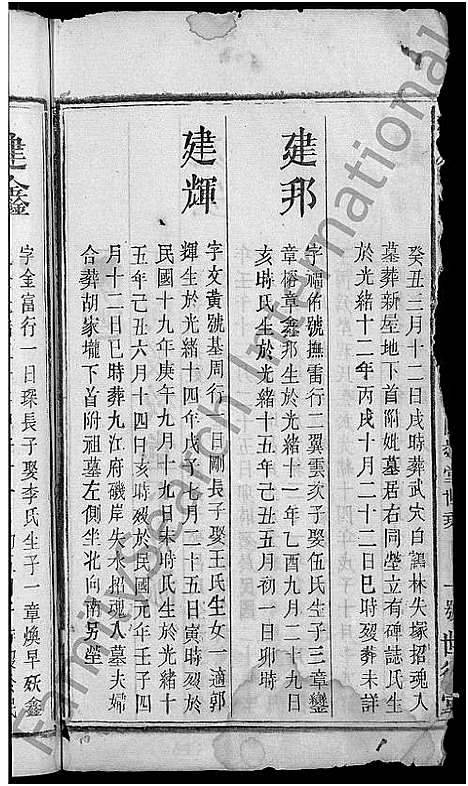 癸丑三月十二日戌時葬武穴白鶴林失塚招魂入
墓葬新屋地下首附妣墓居右同塋立有碑誌氏生
於光緒十二年丙戌十月二十二日巳時歿葬未詳
建邦
字福佑號撫雷行二翼雲次子娶伍氏生子三章鑾
章榕章鑫邦生於光緒十一年乙酉九月二十九日
亥時氏生於光緒 年 五月初一日卯時
建輝
字文黃號基周行一日剛長子娶王氏生女一適郭
輝生於光緒十四年戊子七月二十五日寅時歿於
民國十九年庚午九月十九日未時氏生於光緒十
五年己丑六月十四日亥時歿於民國元年壬子四
月十二日巳時葬九江府磯岸失水招魂入墓夫婦
合葬胡家壠下首附祖墓左側坐北向南另塋
建鑫
字金富行一日琛長子娶李氏生子一章煥早歿鑫
FamilySearch International